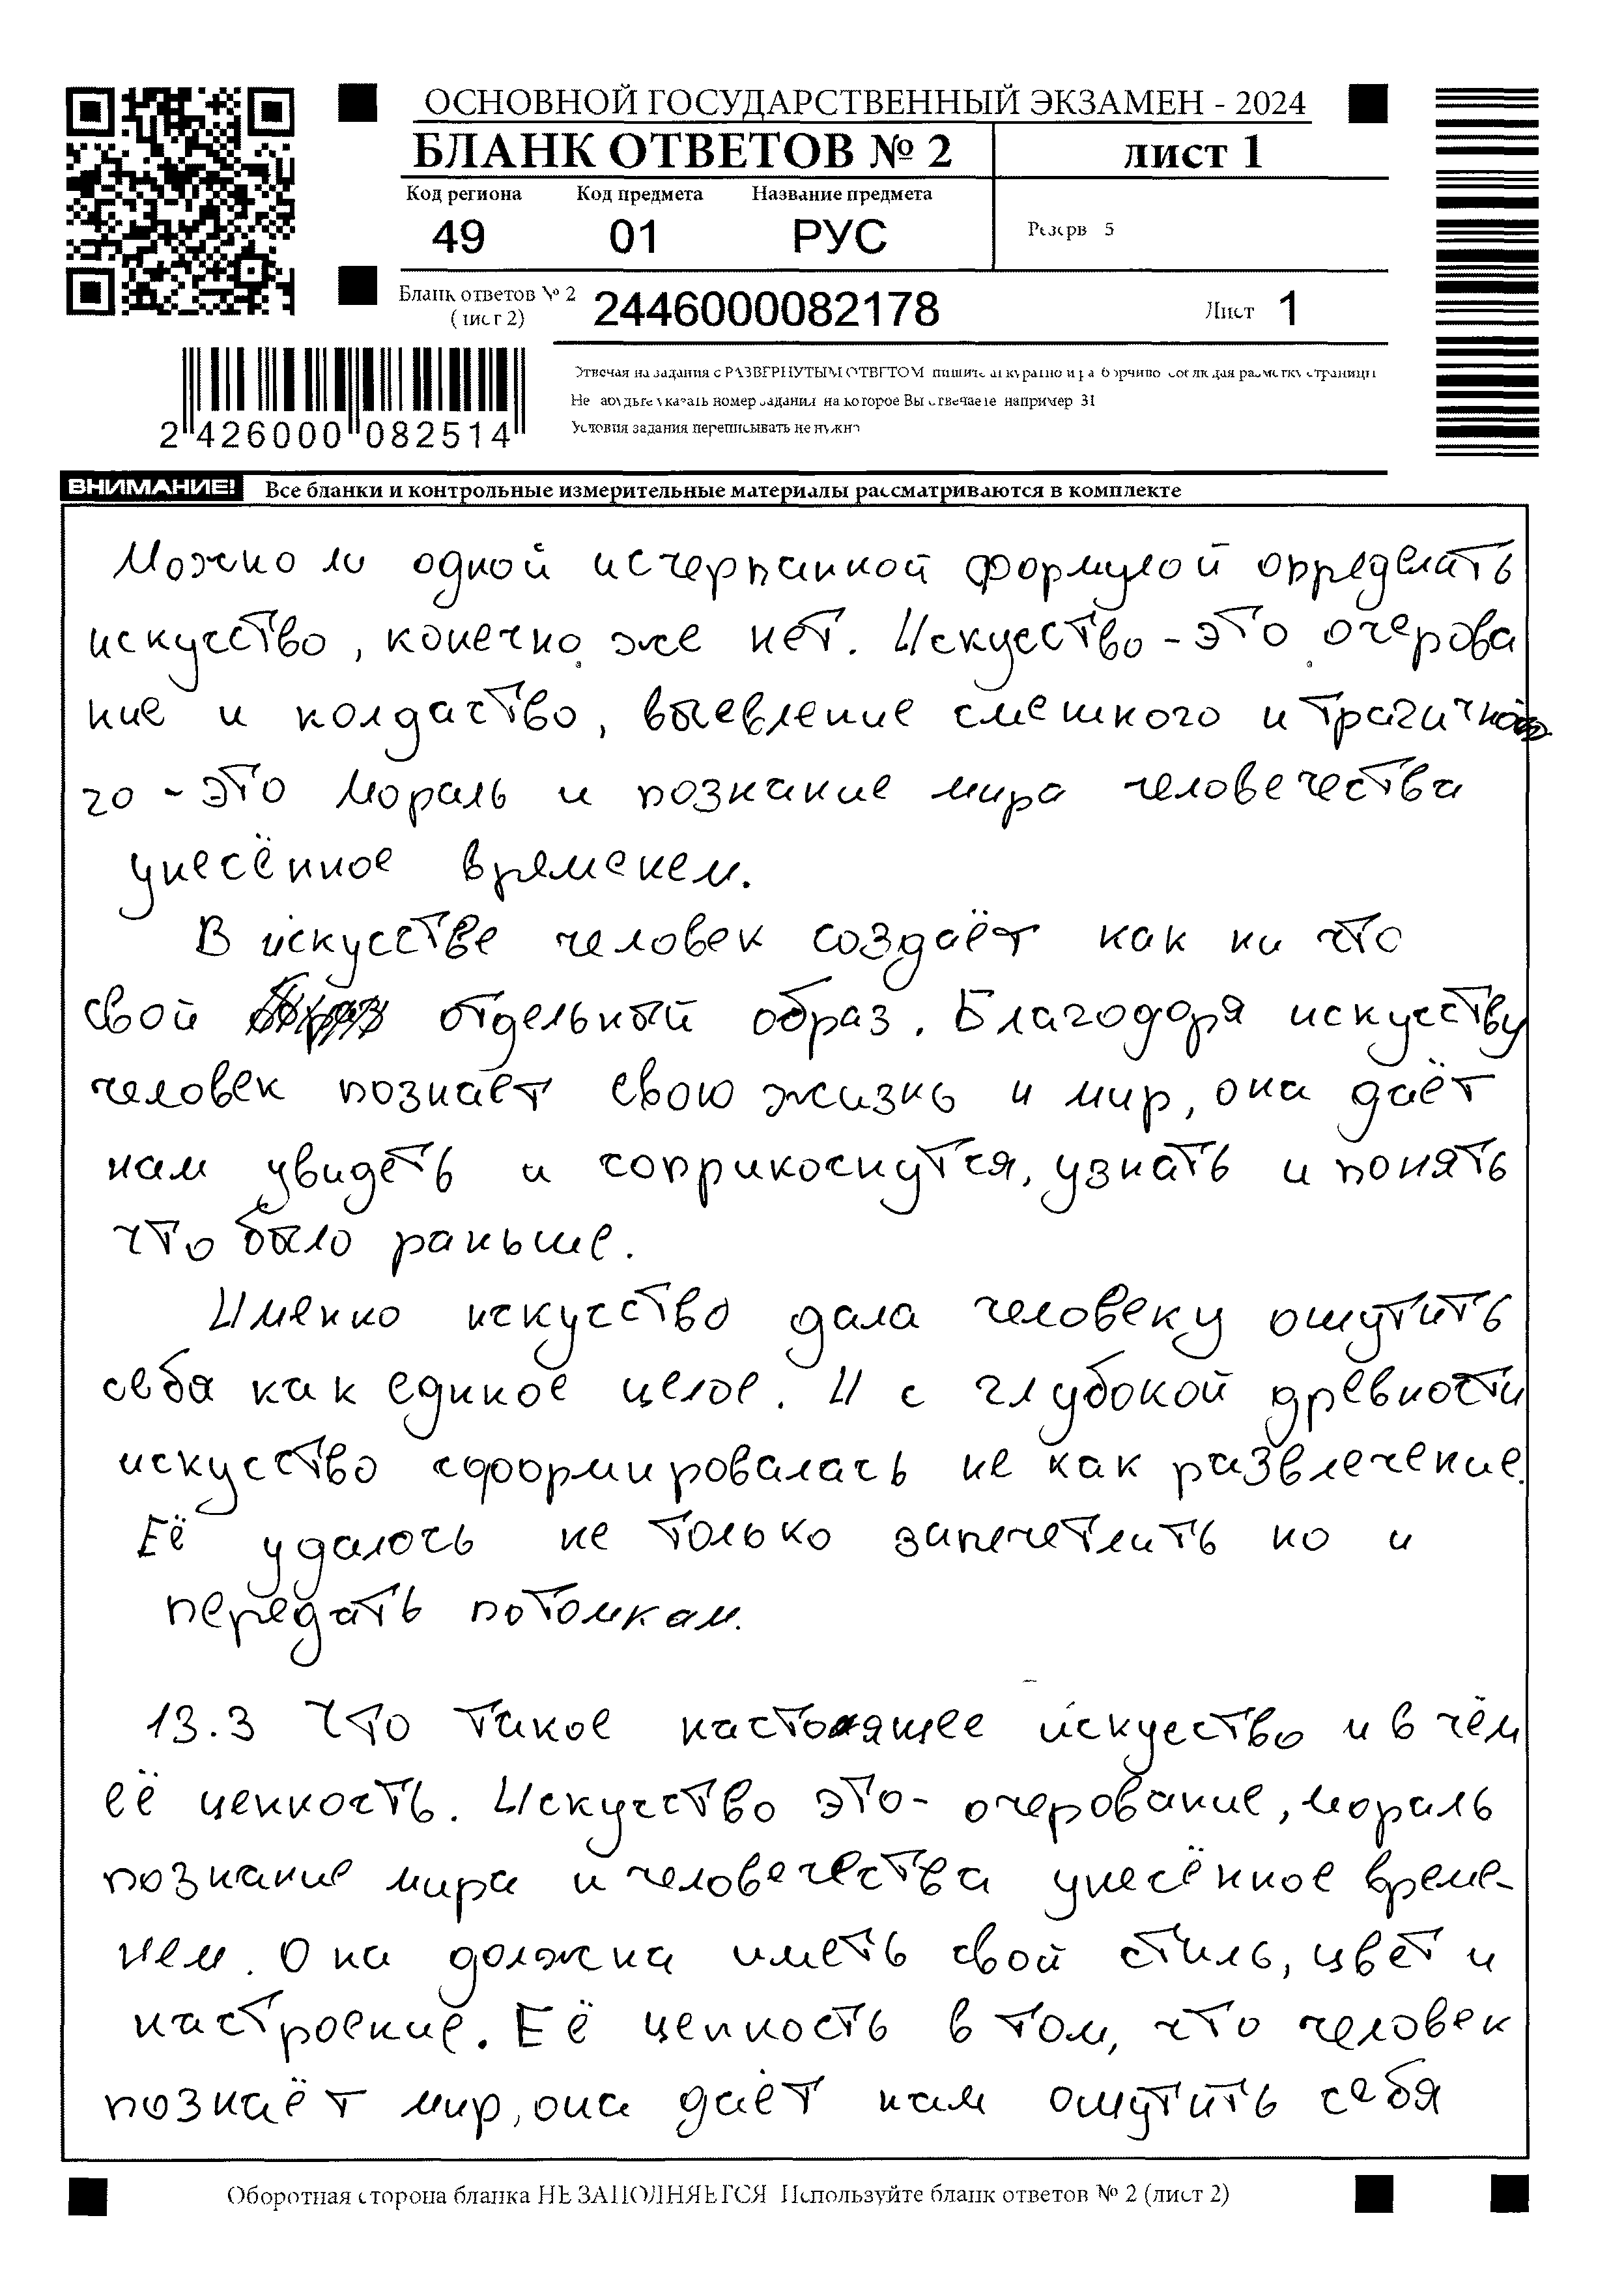 ОСНОВНОЙ ГОСУДАРСТВЕННЫЙ ЭКЗАМЕН - 2024
БЛАНК ОТВЕТОВ № 2 лист 1
Код региона Код предмета Название предмета
49 01 РУС
Резерв 5
Бланк ответов № 2 (лист 2) 2446000082178 Лист 1
2 426000 082514
Отвечая на задания с РАЗВЕРНУТЫМ ОТВЕТОМ пишите аккуратно и разборчиво соблюдая разметку страницы
Не забудьте указать номер задания на которое Вы отвечаете например 31
Условия задания переписывать не нужно
ВНИМАНИЕ! Все бланки и контрольные измерительные материалы рассматриваются в комплекте
Можно ли одной исчерпанной формулой определать
искуство, конечно же нет. Искусство - это очерова
ние и колдаство, выевление смешного и трагично
го - это мораль и познание мира человечества
унесённое временем.
В искусстве человек создаёт как ни что
свой отдельный образ. Благодоря искусству
человек познаёт свою жизнь и мир, она даёт
нам увидеть и соприкоснутся, узнать и понять
что было раньше.
Именно искусство дала человеку ощутить
себя как единое целое. И с глубокой древности
искусство сформировалась не как развлечение.
Её удалось не только запечетлить но и
передать потомкам.
13.3 Что такое настоящее искусство и в чём
её ценность. Искусство это - очерование, мораль
познание мира и человечества унесённое време-
нем. Она должна иметь свой стиль, цвет и
настроение. Её ценность в том, что человек
познаёт мир, она даёт нам ощутить себя
Оборотная сторона бланка НЕ ЗАПОЛНЯЕТСЯ Используйте бланк ответов № 2 (лист 2)